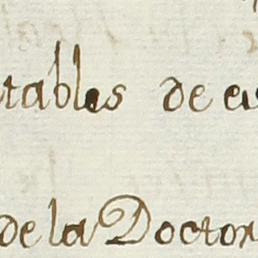 tables de
de la Doctor